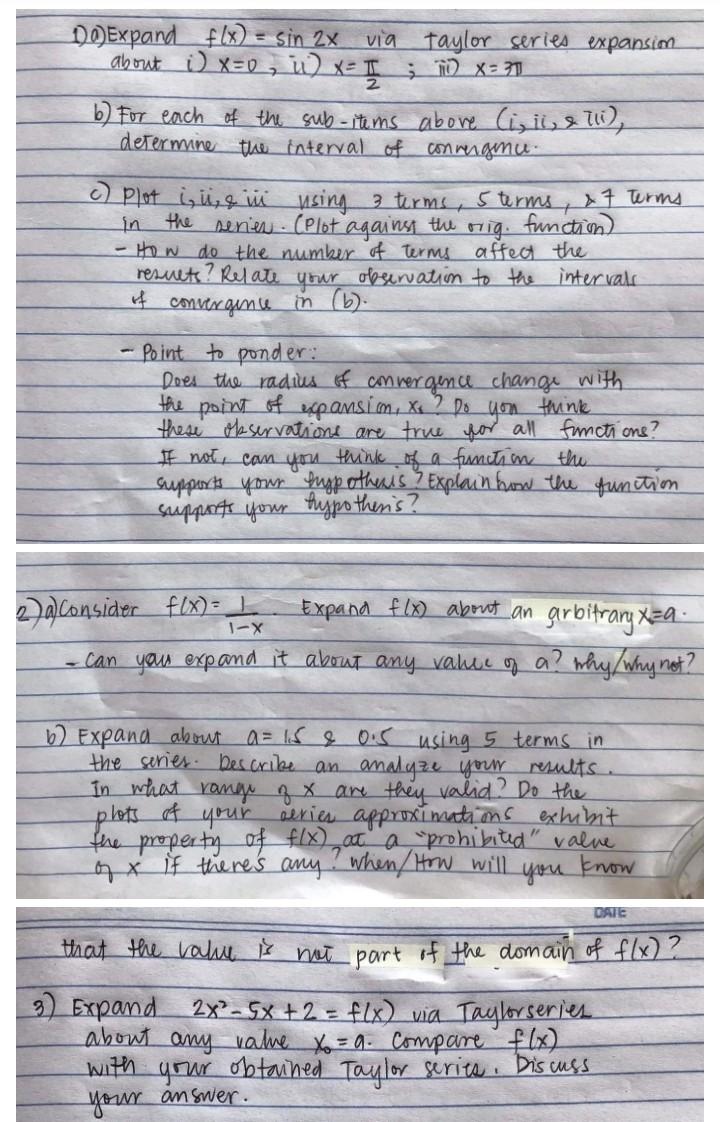 1) a) Expand f(x) = sin 2x via Taylor series expansion
about i) x=0 ; ii) x= π/2 ; iii) x = 3π
b) For each of the sub-items above (i, ii, & iii),
determine the interval of convergence.
c) Plot i, ii, & iii using 3 terms, 5 terms, & 7 terms
in the series. (Plot against the orig. function)
- How do the number of terms affect the
results? Relate your observation to the intervals
of convergence in (b).
- Point to ponder:
Does the radius of convergence change with
the point of expansion, x₀? Do you think
these observations are true for all functions?
If not, can you think of a function the
supports your hypothesis? Explain how the function
supports your hypothesis?
2) a) Consider f(x) = 1/(1-x) . Expand f(x) about an arbitrary x=a.
- Can you expand it about any value of a? Why/why not?
b) Expand about a = 1.5 & 0.5 using 5 terms in
the series. Describe an analyze your results.
In what range of x are they valid? Do the
plots of your series approximations exhibit
the property of f(x) at a "prohibited" value
of x if there's any? When/How will you know
DATE
that the value is not part of the domain of f(x)?
3) Expand 2x² - 5x + 2 = f(x) via Taylor series
about any value x₀ = a. Compare f(x)
with your obtained Taylor series. Discuss
your answer.